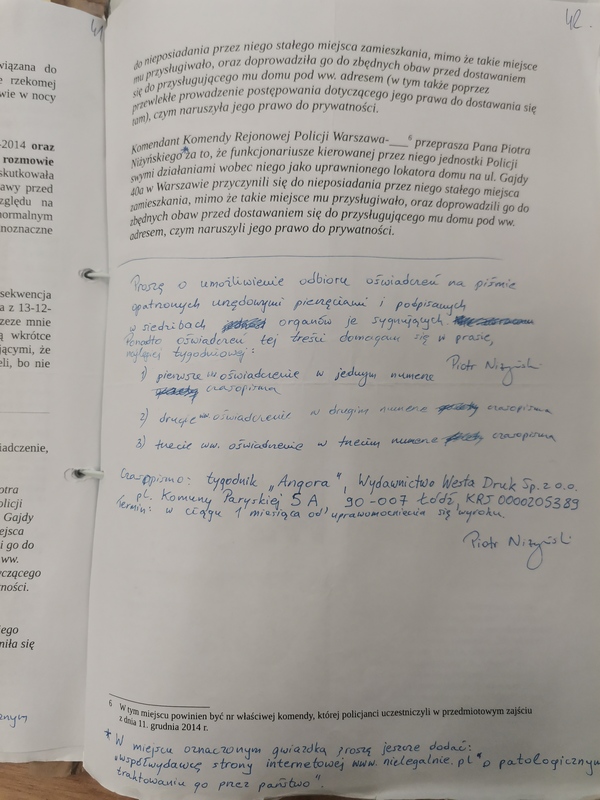 41
wiązana do
e rzekomej
wie w nocy
-2014 oraz
rozmowie
skutkowała
awy przed
zględu na
normalnym
noznaczne
sekwencja
a z 13-12-
zeze mnie
ą wkrótce
jącymi, że
eli, bo nie
iadczenie,
otra
olicji
Gajdy
ejsca
i go do
ww.
yczącego
tności.
ego
niła się
znym
42.
do nieposiadania przez niego stałego miejsca zamieszkania, mimo że takie miejsce
mu przysługiwało, oraz doprowadziła go do zbędnych obaw przed dostawaniem
się do przysługującego mu domu pod ww. adresem (w tym także poprzez
przewlekłe prowadzenie postępowania dotyczącego jego prawa do dostawania się
tam), czym naruszyła jego prawo do prywatności.
Komendant Komendy Rejonowej Policji Warszawa-___6 przeprasza Pana Piotra
Niżyńskiego* za to, że funkcjonariusze kierowanej przez niego jednostki Policji
swymi działaniami wobec niego jako uprawnionego lokatora domu na ul. Gajdy
40a w Warszawie przyczynili się do nieposiadania przez niego stałego miejsca
zamieszkania, mimo że takie miejsce mu przysługiwało, oraz doprowadzili go do
zbędnych obaw przed dostawaniem się do przysługującego mu domu pod ww.
adresem, czym naruszyli jego prawo do prywatności.
Proszę o umożliwienie odbioru oświadczeń na piśmie
opatrzonych urzędowymi pieczęciami i podpisanych
w siedzibach organów je sygnujących.
Ponadto oświadczeń tej treści domagam się w prasie,
najlepiej tygodniowej:
Piotr Niżyński
1) pierwsze ww. oświadczenie w jednym numerze
czasopisma
2) drugie ww. oświadczenie w drugim numerze czasopisma
3) trzecie ww. oświadczenie w trzecim numerze czasopisma
Czasopismo: tygodnik „Angora", Wydawnictwo Westa Druk Sp. z o.o.
pl. Komuny Paryskiej 5 A 90-007 Łódź, KRS 0000205389
Termin: w ciągu 1 miesiąca od uprawomocnienia się wyroku.
Piotr Niżyński
6 W tym miejscu powinien być nr właściwej komendy, której policjanci uczestniczyli w przedmiotowym zajściu
z dnia 11. grudnia 2014 r.
* W miejscu oznaczonym gwiazdką proszę jeszcze dodać:
„współwydawcę strony internetowej www.nielegalne.pl o patologicznym
traktowaniu go przez państwo".